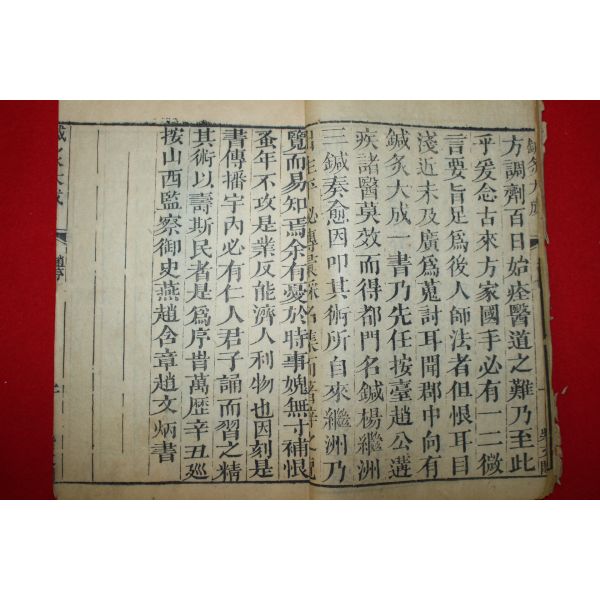 鍼灸大成
方調劑百日始痊醫道之難乃至此
乎爰念古來方家國手必有一二微
言要旨足爲後人師法者但恨耳目
淺近未及廣爲蒐討耳聞郡中向有
鍼灸大成一書乃先任按臺趙公遘
疾諸醫莫效而得都門名鍼楊繼洲
三鍼奏愈因叩其術所自來繼洲乃
出生平
覽而易知焉余有憂於時事媿無寸補恨
蚤年不攻是業反能濟人利物也因刻是
書傳播宇內必有仁人君子誦而習之精
其術以壽斯民者是爲序昔萬歷辛丑廵
按山西監察御史燕趙含章趙文炳書
鍼灸大成
趙序